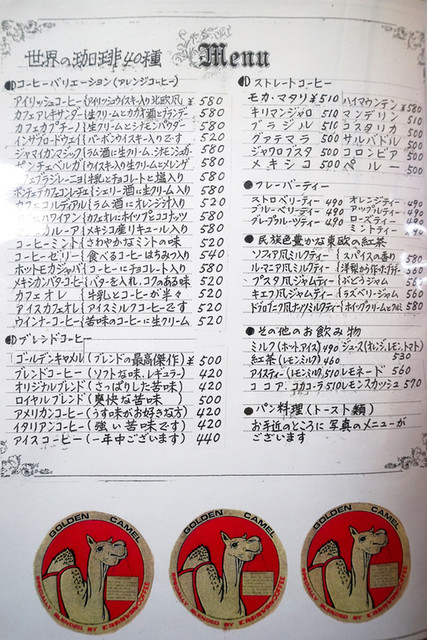 世界の珈琲40種 Menu
コーヒーバリエーション(アレンジコーヒー)
アイリッシュコーヒー(アイリッシュウイスキー入り北欧風) ¥580
カフェアレキサンダー(生クリームとカカオ酒とブランデー) 580
カフェカプチーノ(生クリームとシナモンパウダー) 520
580
580
580
580
580
カフェコルディアル(ラム酒にオレンジ汁入) 520
ハワイアン(カフェオレにホイップとココナッツ) 580
カルーア(メキシコ産リキュール入り) 580
コーヒーミント(さわやかなミントの味) 520
コーヒーゼリー(食べるコーヒーはちみつ入) 540
ホットモカジャバ(コーヒーにチョコレート入り) 580
メキシカンバターコーヒー(バターを入れ、コクのある味) 520
カフェオレ(牛乳とコーヒーが半々) 520
アイスカフェオレ(アイスミルクコーヒーです) 520
ウインナーコーヒー(苦味のコーヒーに生クリーム) 520
ブレンドコーヒー
ゴールデンキャメル(ブレンドの最高傑作) ¥500
ブレンドコーヒー(ソフトな味、レギュラー) 420
オリジナルブレンド(さっぱりした苦味) 420
ロイヤルブレンド(爽快な苦味) 500
アメリカンコーヒー(うす味がお好きな方) 420
イタリアンコーヒー(強い苦味です) 420
アイスコーヒー(一年中ございます) 440
ストレートコーヒー
モカ・マタリ ¥510 ハイマウンテン ¥580
キリマンジャロ 510 マンデリン 510
ブラジル 510 コスタリカ 500
グァテマラ 500 サルバドル 500
ジャワロブスタ 500 コロンビア 500
メキシコ 500 ペルー 500
フレーバーティー
ストロベリーティー 490 オレンジティー 490
ブルーベリーティー 490 アップルティー 490
グレープフルーツティー 490 ローズティー 490
ミントティー 490
民族色豊かな東欧の紅茶
ソフィア風ミルクティー(スパイスの香り) 580
ルーマニア風ミルクティー 580
プスタ風ジャムティー(ぶどうジャム) 560
キエフ風ジャムティー(ラズベリージャム) 560
580
その他のお飲み物
ミルク(ホットアイス) 490 ジュース(オレンジ、レモン、トマト) 530
紅茶(レモン、ミルク) 460
アイスティー(レモン、ミルク) 510 レモネード 560
ココア、コカコーラ 510 レモンスカッシュ 570
パン料理(トースト類)
お手近のところに写真のメニューが
ございます
GOLDEN CAMEL
SPECIALLY BLENDED BY CARAVANCOFFEE
GOLDEN CAMEL
SPECIALLY BLENDED BY CARAVANCOFFEE
GOLDEN CAMEL
SPECIALLY BLENDED BY CARAVANCOFFEE